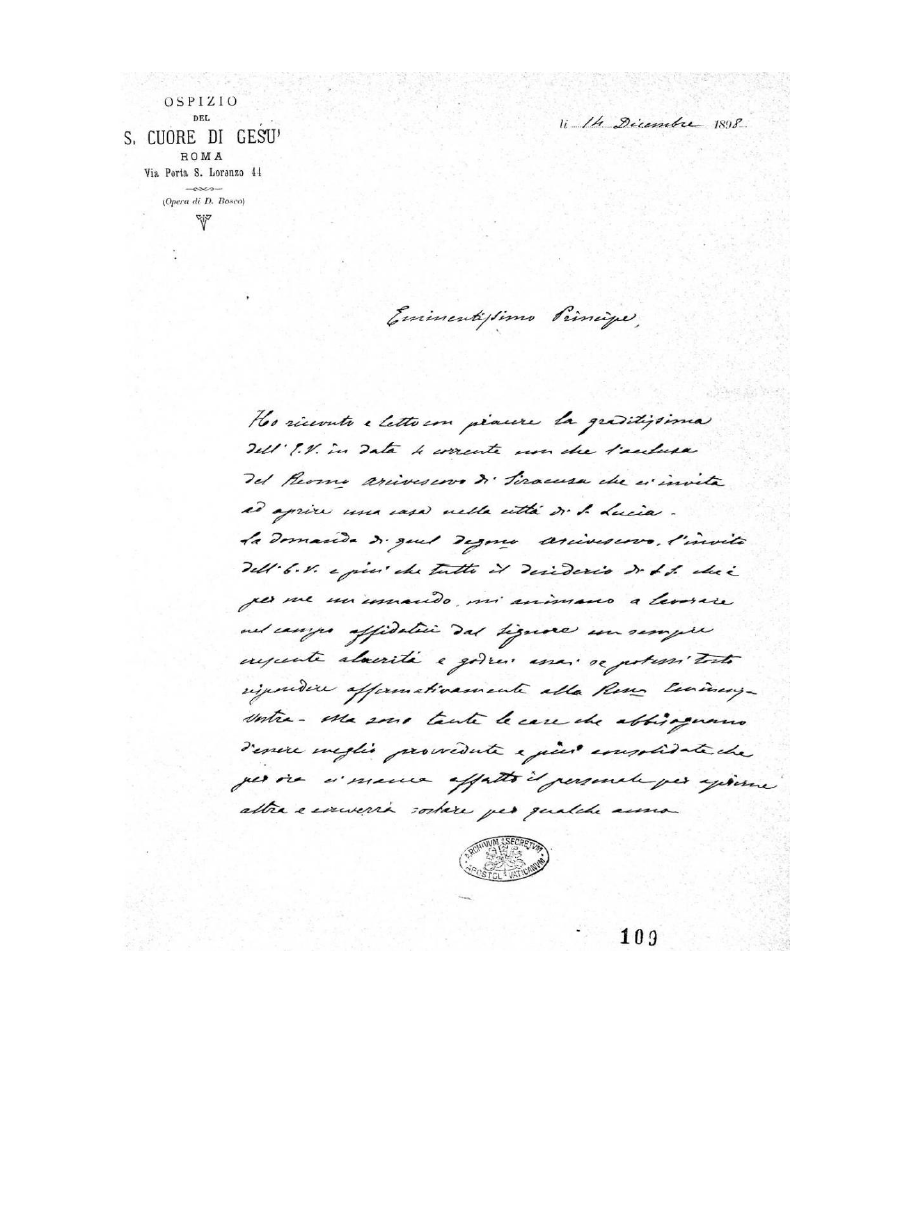 OSPIZIO
DEL
S. CUORE DI GESU'
ROMA
Via Porta S. Lorenzo 44
(Opera di D. Bosco)
li 14 Dicembre 1898
Eminentissimo Principe,
Ho ricevuto e letto con piacere la graditissima
dell' E.V. in data 4 corrente non che l'acclusa
del Revmo Arcivescovo di Siracusa che ci invita
ad aprire una casa nella città di S. Lucia -
La domanda di quel degno Arcivescovo, l'invito
dell' E. V. e più che tutto il desiderio di S.S. che è
per me un comando, mi animano a lavorare
nel campo affidatoci dal Signore con sempre
crescente alacrità e godrei assai se potessi tosto
rispondere affermativamente alla Rev Eminenz
Vostra - Ma sono tante le case che abbisognano
d'essere meglio provvedute e più consolidate che
per ora ci manca affatto il personale per aprirne
altra e converrà sostare per qualche anno
ARCHIVUM SECRETVM
APOSTOL VATICANVM
109